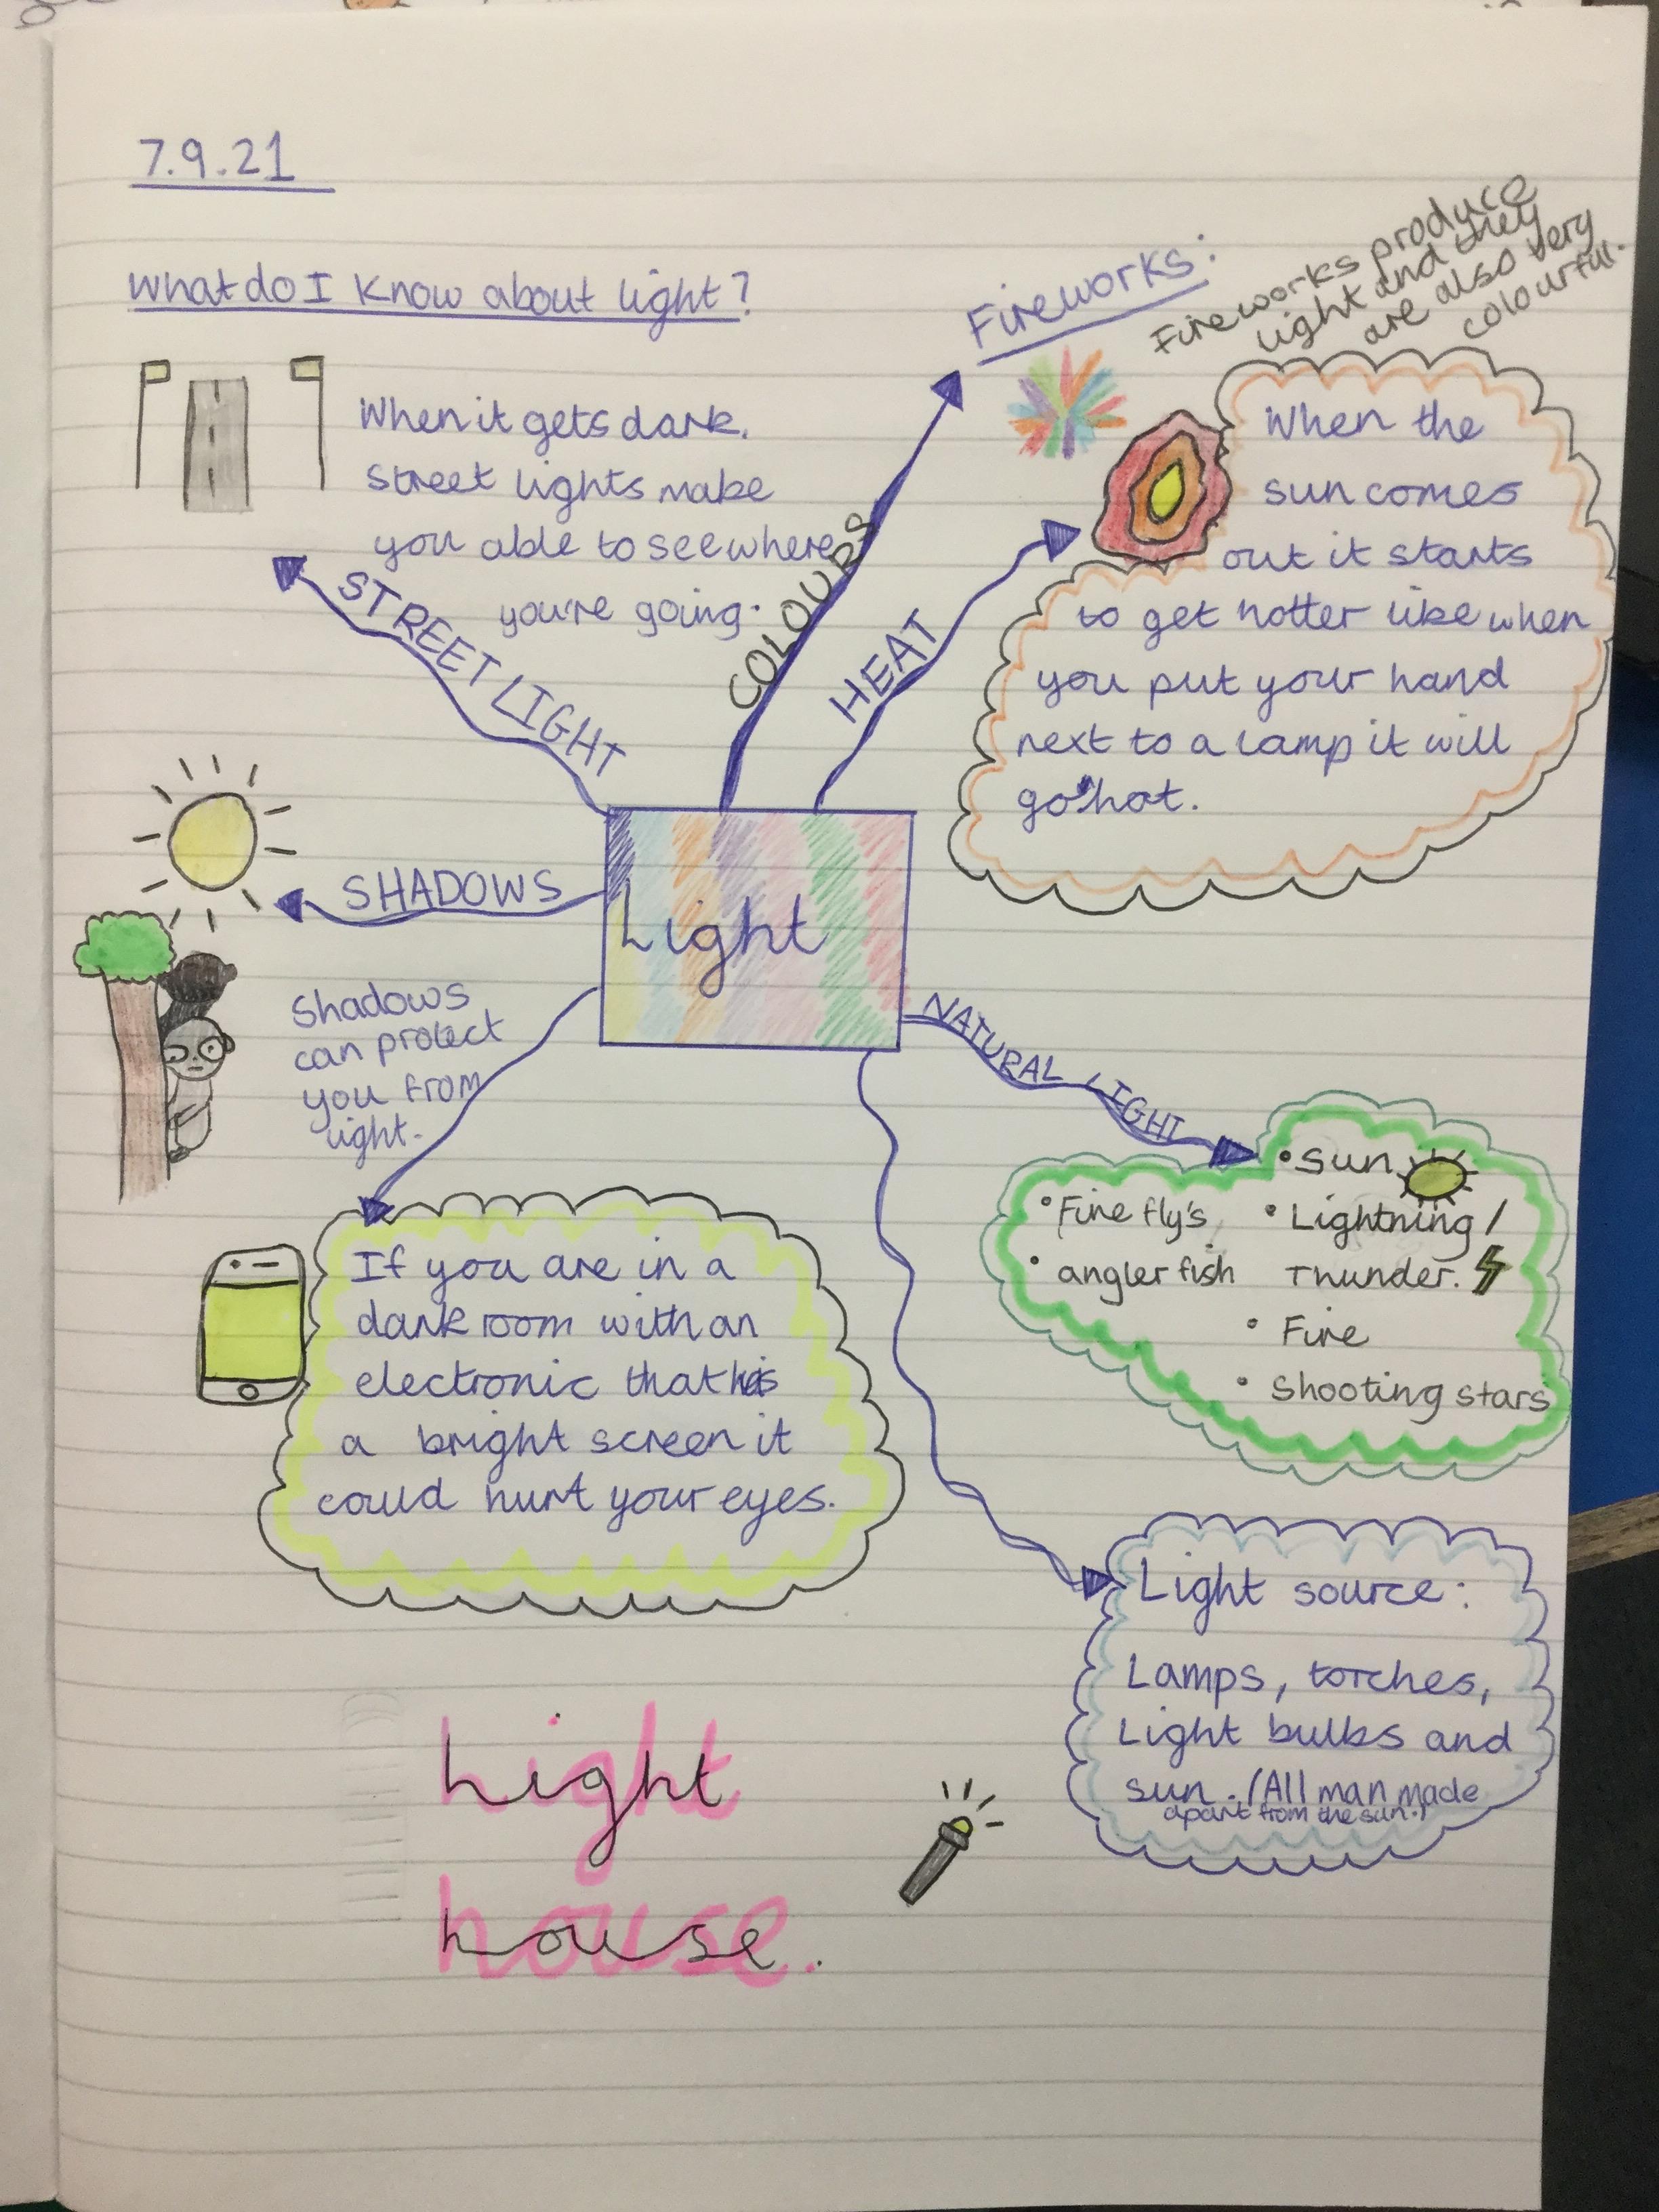 7.9.21
What do I know about light?
When it gets dark.
Street lights make
you able to see where
you're going.
STREET LIGHT
COLOURS
Fireworks:
Fireworks produce
light and they
are also very
colourful.
HEAT
When the
sun comes
out it starts
to get hotter like when
you put your hand
next to a lamp it will
go hot.
SHADOWS
Shadows
can protect
you from
light.
Light
NATURAL LIGHT
• Sun
• Fire fly's
• Lightning /
Thunder.
• angler fish
• Fire
• Shooting stars
If you are in a
dark room with an
electronic that has
a bright screen it
could hurt your eyes.
Light source:
Lamps, torches,
Light bulbs and
sun. (All man made
apart from the sun.)
Light
house.